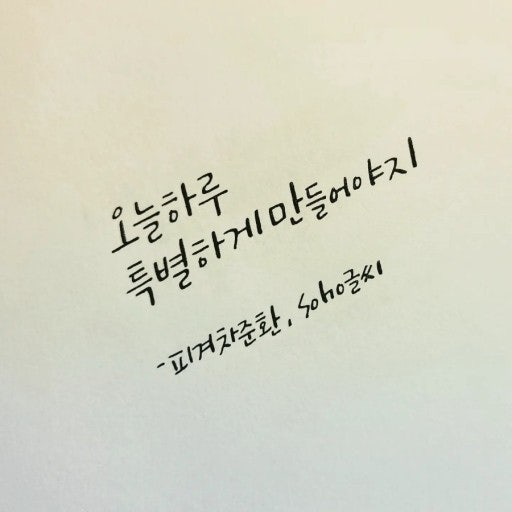 오늘하루
특별하게 만들어야지
-피겨차준환, Soho글씨